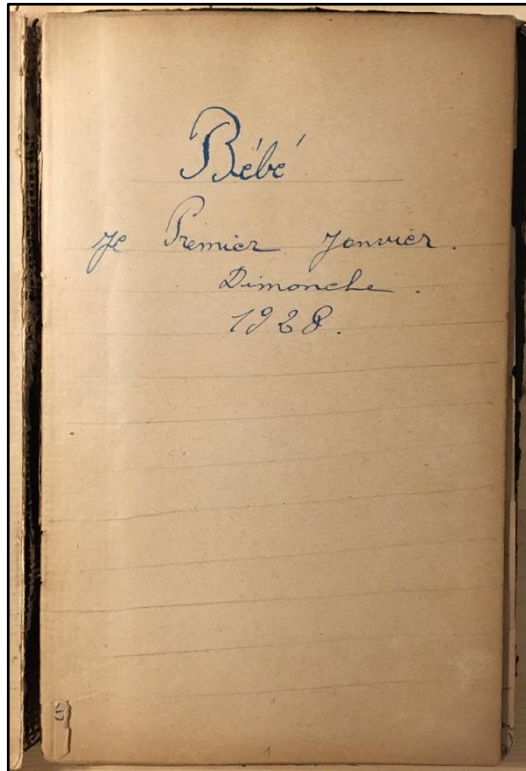 Bébé
Le Premier Janvier.
Dimanche.
1928.